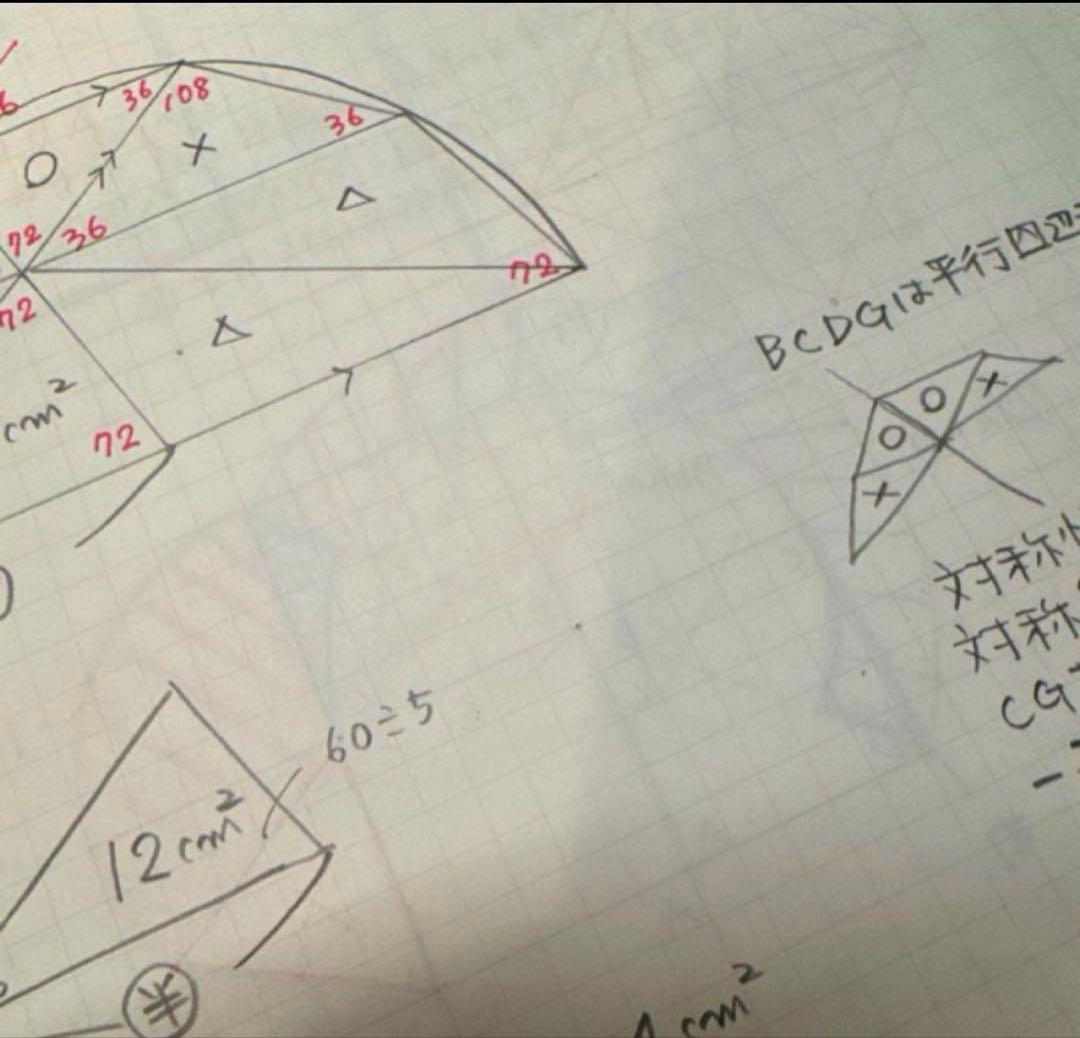 36
108
36
○
×
△
72
36
72
72
△
cm²
72
BCDGは平行四辺
○
×
○
×
対称
対称
CG
60÷5
12cm²
cm²